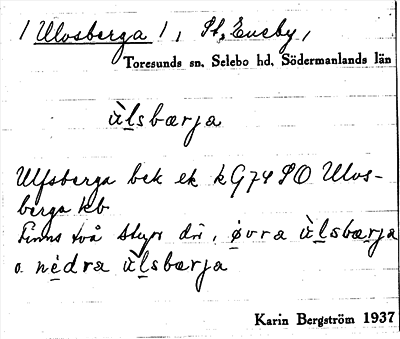 / Ulvsberga /, St. Eneby,
Toresunds sn. Selebo hd. Södermanlands län
ùlsbærja
Ulfsberga bek ek kG74 SO Ulvs-
berga kb
Finns två styr dri, øvra ùlsbærja
o. nèdra ùlsbærja
Karin Bergström 1937